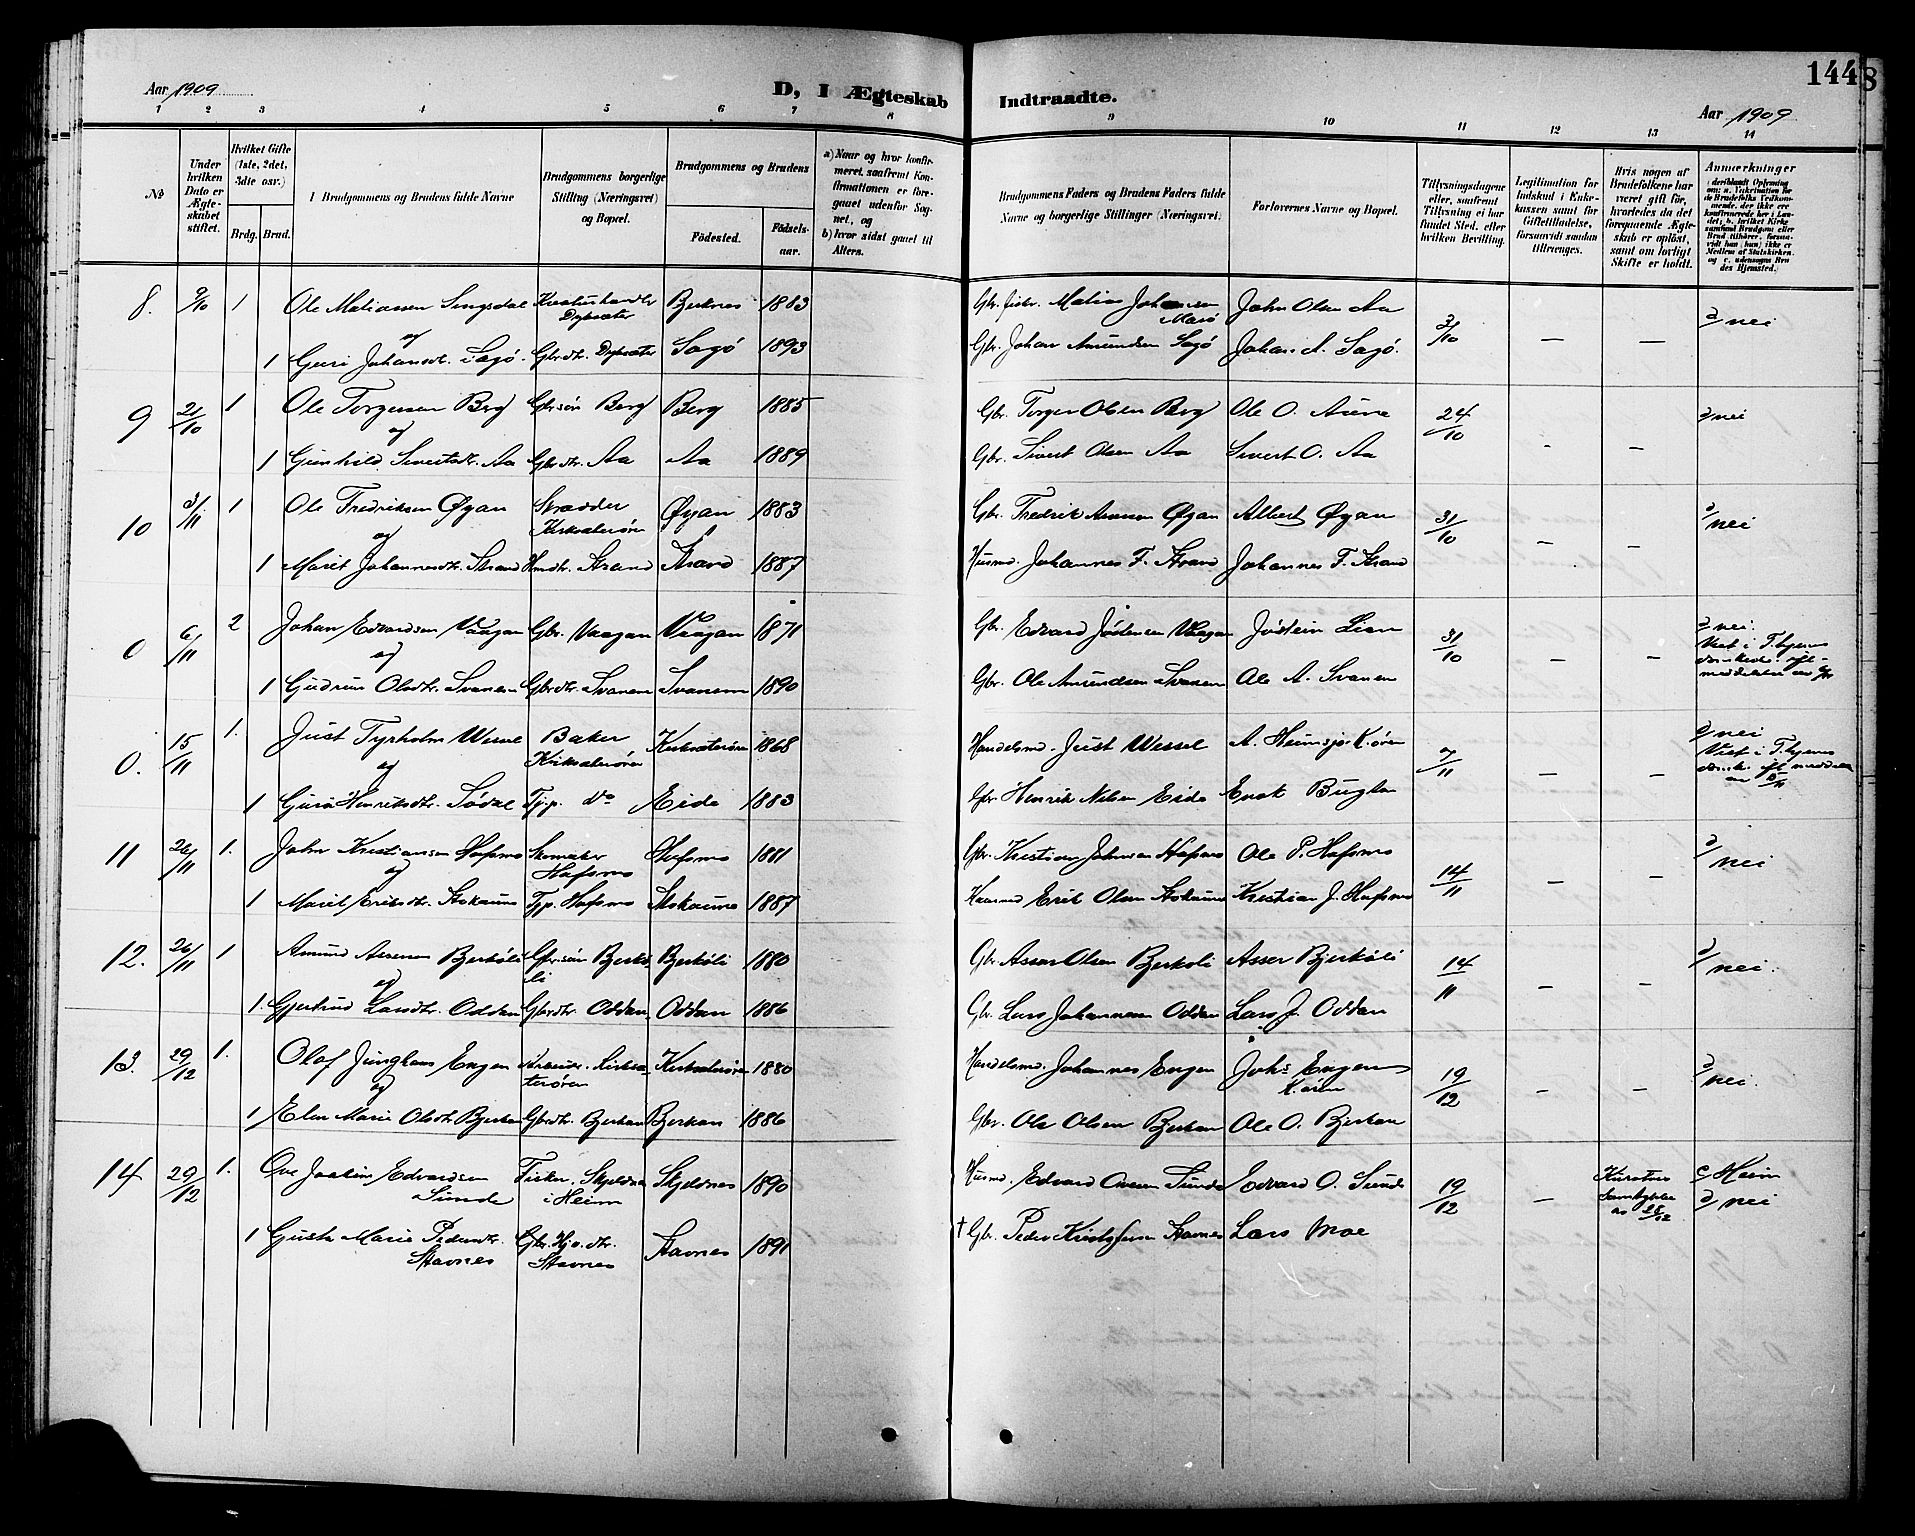 Aar 1909
D, I Ægteskab
Indtraadte.
144
8
Aar 1909
1 2 3 4 5 6 7 8 9 10 11 12 13 14
No
Under hvilken Dato er Ægteskabet stiftet.
Hvilket Gifte (1ste, 2det, 3die osr.)
Brdg. Brud.
Brudgommens og Brudens fulde Navne
Brudgommens borgerlige Stilling (Næringsvei) og Bopæl.
Brudgommens og Brudens
Födested.
Födsels-aar.
a) Naar og hvor konfirmeret, saafremt Konfirmationen er foregaaet udenfor Sognet, og
b) hvor sidst gaaet til Alters.
Brudgommens Faders og Brudens Faders fulde Navne og borgerlige Stillinger (Næringsvei.
Forlovernes Navne og Bopæl.
Tillysningsdagene eller, saafremt Tillysning ei har fundet Sted, efter hvilken Bevilling.
Legitimation for Indskud i Enkekassen samt for Giftetilladelse, forsaavidt saadan tiltrænges.
Hvis nogen af Brudefolkene har været gift för, hvorledes da det foregaaende Ægteskab er oplöst, samt om lovligt Skifte er holdt.
Anmærkninger
8. 9/10 1 Ole Matiassen Singsdal Dypsæter Bjerknes 1883 Gbr. fisk. Matias Johansen Masø John Olsen Aa 3/10 nei
og
1 Guri Johansdt. Sagø Gbrdtr. Dypsæter Sagø 1893 Gbr. Johan Amundsen Sagø Johan A. Sagø. — —
9 21/10 1 Ole Torgersen Berg Gbrsøn Berg Berg 1885 Gbr. Torger Olsen Berg Ole O. Aune 24/10 nei
og
1 Gunhild Sivertsdtr. Aa Gbrdtr. Aa Aa 1889 Gbr. Sivert Olsen Aa Sivert O. Aa - -
10 3/11 1 Ole Fredriksen Øyan Skrædder Kirksæterøren Øyan 1883 Gbr. Fredrik Arnesen Øyan Albert Øyan 31/10 nei
og
1 Marit Johannesdtr. Strand Hmdtr. Strand Strand 1887 Husmd. Johannes F. Strand Johannes F. Strand - -
0 6/11 2 Johan Edvardsen Vaagan Gbr. Vaagan Vaagan 1871 Gbr. Edvard Jøstensen Vaagan Jøstein Lian 31/10 nei.
og
1 Gudrun Olsdtr. Svanem Gbrdtr. Svanem Svanem 1890 Gbr. Ole Amundsen Svanem Ole A. Svanem - -
0. 15/11 1. Just Tyrholm Wessel Baker Kirksæterøren Kirksæterøren 1868 Handelsmd. Just Wessel A. Heimsjø K.øren 7/11 nei
og
1 Guri Henriksdtr. Sødal Tjp. do Eide 1883 Gbr. Henrik Nilsen Eide Enok Bugten - -
11 26/11 1. John Kristiansen Hafsmo Skomaker Hafsmo Hafsmo 1881 Gbr. Kristian Johnsen Hafsmo Ole P. Hafsmo 14/11 nei
og
1 Marit Eriksdtr. Stokaune Tjp. Hafsmo Stokaune 1887 Husmd Erik Olsen Stokaune Kristian J. Hafsmo - -
12. 26/11 1 Amund Assersen Bjerkøli Gbrsøn Bjerkøli Bjerkøli 1880 Gbr. Asser Olsen Bjerkøli Asser Bjerkøli 14/11 nei.
og
1. Gjertrud Larsdtr. Oddan Gbrdtr. Oddan. Oddan 1886 Gbr. Lars Johannesen Oddan Lars J. Oddan - -
13. 29/12 1. Olaf Junghans Engen Kirksæterøren Kirksæterøren 1880 Handelsmd. Johannes Engen Johs Engen K.øren 19/12 nei.
og
1 Elen Marie Olsdtr Bjerkan Gbrdtr. Bjerkan Bjerkan 1886 Gbr. Ole Olsen Bjerkan Ole O. Bjerkan - -
14 29/12 1. Ove Joakim Edvardsen Sunde Fisker. Skjeldnes i Heim Skjeldnes 1890 Husmd. Edvard Olsen Sunde Edvard O. Sunde 19/12 - c/ Heim
nei
1 Gusta Marie Pedersdtr. Stavnes Gbr. Stavnes Stavnes 1891 † Gbr. Peder Stavnes Lars Moe